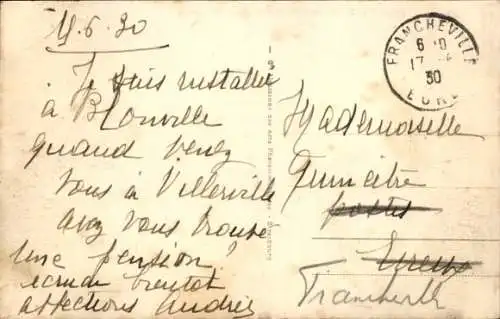 6.30
Je suis installée
à Blonville
quand venez
vous à Villerville
avez vous trouvé
une pension
bientot
affections Andrée
FRANCHEVILLE
6
17
30
EURE
Mademoiselle
postes